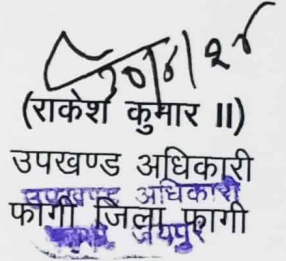 (राकेश कुमार II)
उपखण्ड अधिकारी
उपखण्ड अधिकारी
फागी जिला फागी
जयपुर